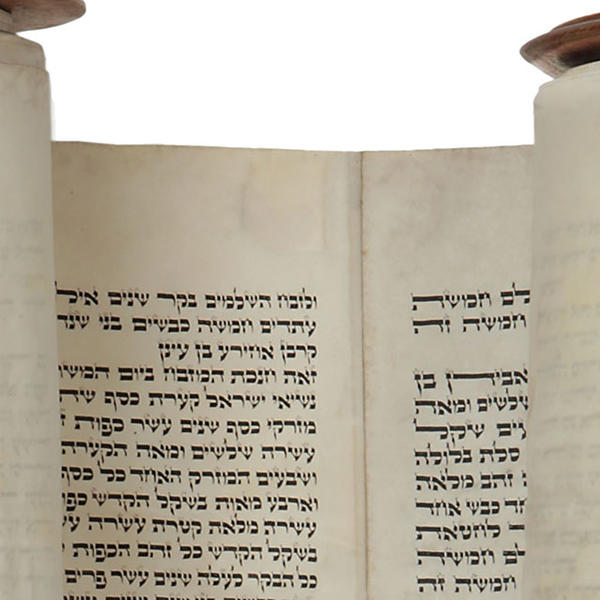 חמשה
חמשה זה
אבידן בן
שלשים ומאה
שקל
סלת בלולה
זהב מלאה
כבש אחד
לחטאת
חמשה
חמשה זה
ולזבח השלמים בקר שנים
עתדים חמשה כבשים בני
קרבן אחירע בן עינן
זאת חנכת המזבח ביום
נשיאי ישראל קערת כסף
מזרקי כסף שנים עשר כפות
עשרה שלשים ומאה הקערה
ושבעים המזרק האחד כל כסף
וארבע מאות בשקל הקדש
עשרה מלאת קטרת עשרה
בשקל הקדש כל זהב הכפות
כל הבקר לעלה שנים עשר פרים